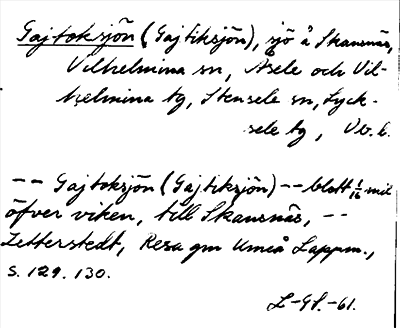 Gajtoksjön (Gajtiksjön), sjö å Skansnäs,
Vilhelmina sn, Åsele och Vil-
helmina tg, Stensele sn, Lyck-
sele tg, Vb. l.
-- Gajtoksjön (Gajtiksjön) -- blott 1/16 mil
öfver viken, till Skansnäs, --
Zetterstedt, Resa gm Umeå Lappm.,
s. 129. 130.
L-Gf. -61.